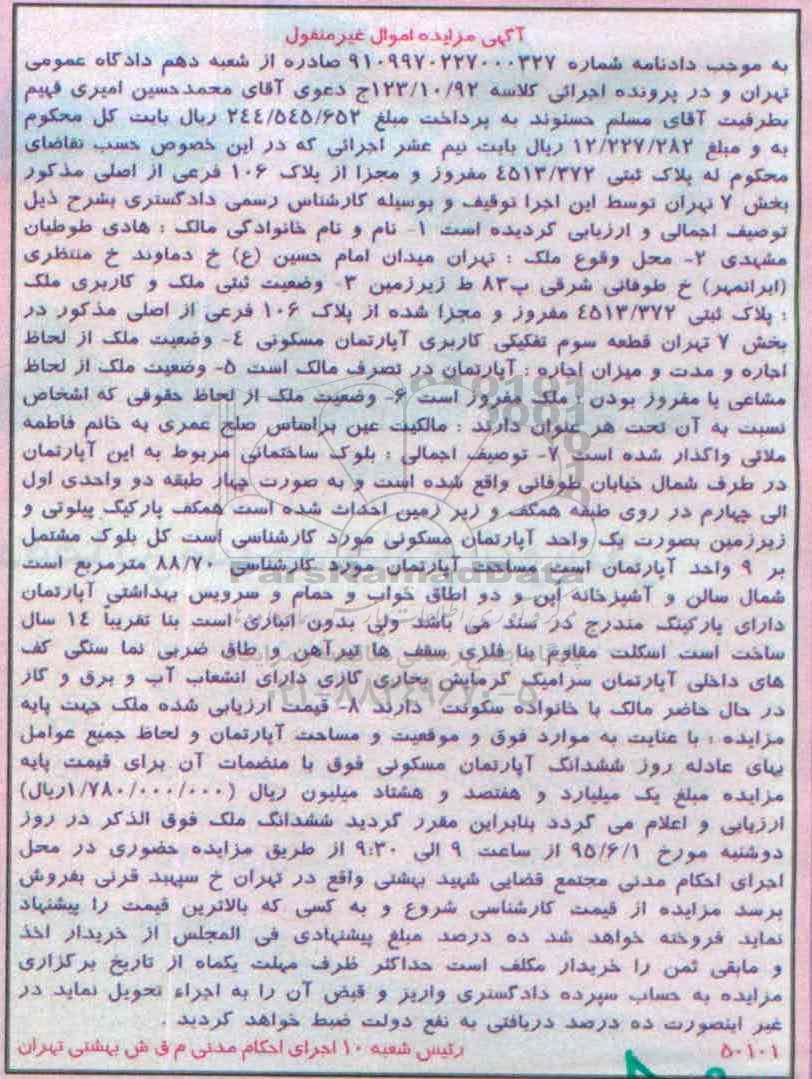 آگهی مزایده اموال غیرمنقول
به موجب دادنامه شماره ۹۱۰۹۹۷۰۲۲۷۰۰۰۳۲۷ صادره از شعبه دهم دادگاه عمومی
تهران و در پرونده اجرائی کلاسه ۱۲۳/۱۰/۹۲ج دعوی آقای محمدحسین امیری فهیم
بطرفیت آقای مسلم حسنوند به پرداخت مبلغ ۲۴۴/۵۴۵/۶۵۲ ریال بابت کل محکوم
به و مبلغ ۱۲/۲۲۷/۲۸۲ ریال بابت نیم عشر اجرائی که در این خصوص حسب تقاضای
محکوم له پلاک ثبتی ۴۵۱۳/۳۷۲ مفروز و مجزا از پلاک ۱۰۶ فرعی از اصلی مذکور
بخش ۷ تهران توسط این اجرا توقیف و بوسیله کارشناس رسمی دادگستری بشرح ذیل
توصیف اجمالی و ارزیابی گردیده است ۱- نام و نام خانوادگی مالک : هادی طوطیان
مشهدی ۲- محل وقوع ملک : تهران میدان امام حسین (ع) خ دماوند خ منتظری
(ایرانمهر) خ طوفانی شرقی پ۸۳ ط زیرزمین ۳- وضعیت ثبتی ملک و کاربری ملک
: پلاک ثبتی ۴۵۱۳/۳۷۲ مفروز و مجزا شده از پلاک ۱۰۶ فرعی از اصلی مذکور در
بخش ۷ تهران قطعه سوم تفکیکی کاربری آپارتمان مسکونی ۴- وضعیت ملک از لحاظ
اجاره و مدت و میزان اجاره : آپارتمان در تصرف مالک است ۵- وضعیت ملک از لحاظ
مشاعی یا مفروز بودن : ملک مفروز است ۶- وضعیت ملک از لحاظ حقوقی که اشخاص
نسبت به آن تحت هر عنوان دارند : مالکیت عین براساس صلح عمری به خانم فاطمه
ملائی واگذار شده است ۷- توصیف اجمالی : بلوک ساختمانی مربوط به این آپارتمان
در طرف شمال خیابان طوفانی واقع شده است و به صورت چهار طبقه دو واحدی اول
الی چهارم در روی طبقه همکف و زیر زمین احداث شده است همکف پارکینگ پیلوتی و
زیرزمین بصورت یک واحد آپارتمان مسکونی مورد کارشناسی است کل بلوک مشتمل
بر ۹ واحد آپارتمان است مساحت آپارتمان مورد کارشناسی ۸۸/۷۰ مترمربع است
شمال سالن و آشپزخانه اپن و دو اطاق خواب و حمام و سرویس بهداشتی آپارتمان
دارای پارکینگ مندرج در سند می باشد ولی بدون انباری است بنا تقریباً ۱۴ سال
ساخت است اسکلت مقاوم بنا فلزی سقف ها تیرآهن و طاق ضربی نما سنگی کف
های داخلی آپارتمان سرامیک گرمایش بخاری گازی دارای انشعاب آب و برق و گاز
در حال حاضر مالک با خانواده سکونت دارند ۸- قیمت ارزیابی شده ملک جهت پایه
مزایده : با عنایت به موارد فوق و موقعیت و مساحت آپارتمان و لحاظ جمیع عوامل
بهای عادله روز ششدانگ آپارتمان مسکونی فوق با منضمات آن برای قیمت پایه
مزایده مبلغ یک میلیارد و هفتصد و هشتاد میلیون ریال (۱/۷۸۰/۰۰۰/۰۰۰ریال)
ارزیابی و اعلام می گردد بنابراین مقرر گردید ششدانگ ملک فوق الذکر در روز
دوشنبه مورخ ۹۵/۶/۱ از ساعت ۹ الی ۹:۳۰ از طریق مزایده حضوری در محل
اجرای احکام مدنی مجتمع قضایی شهید بهشتی واقع در تهران خ سپهبد قرنی بفروش
برسد مزایده از قیمت کارشناسی شروع و به کسی که بالاترین قیمت را پیشنهاد
نماید فروخته خواهد شد ده درصد مبلغ پیشنهادی فی المجلس از خریدار اخذ
و مابقی ثمن را خریدار مکلف است حداکثر ظرف مهلت یکماه از تاریخ برگزاری
مزایده به حساب سپرده دادگستری واریز و قبض آن را به اجراء تحویل نماید در
غیر اینصورت ده درصد دریافتی به نفع دولت ضبط خواهد گردید .
۵۰۱۰۱ رئیس شعبه ۱۰ اجرای احکام مدنی م ق ش بهشتی تهران
ParsNamadData
۰۲۱-۸۸۳۴۹۶۷۰-۵